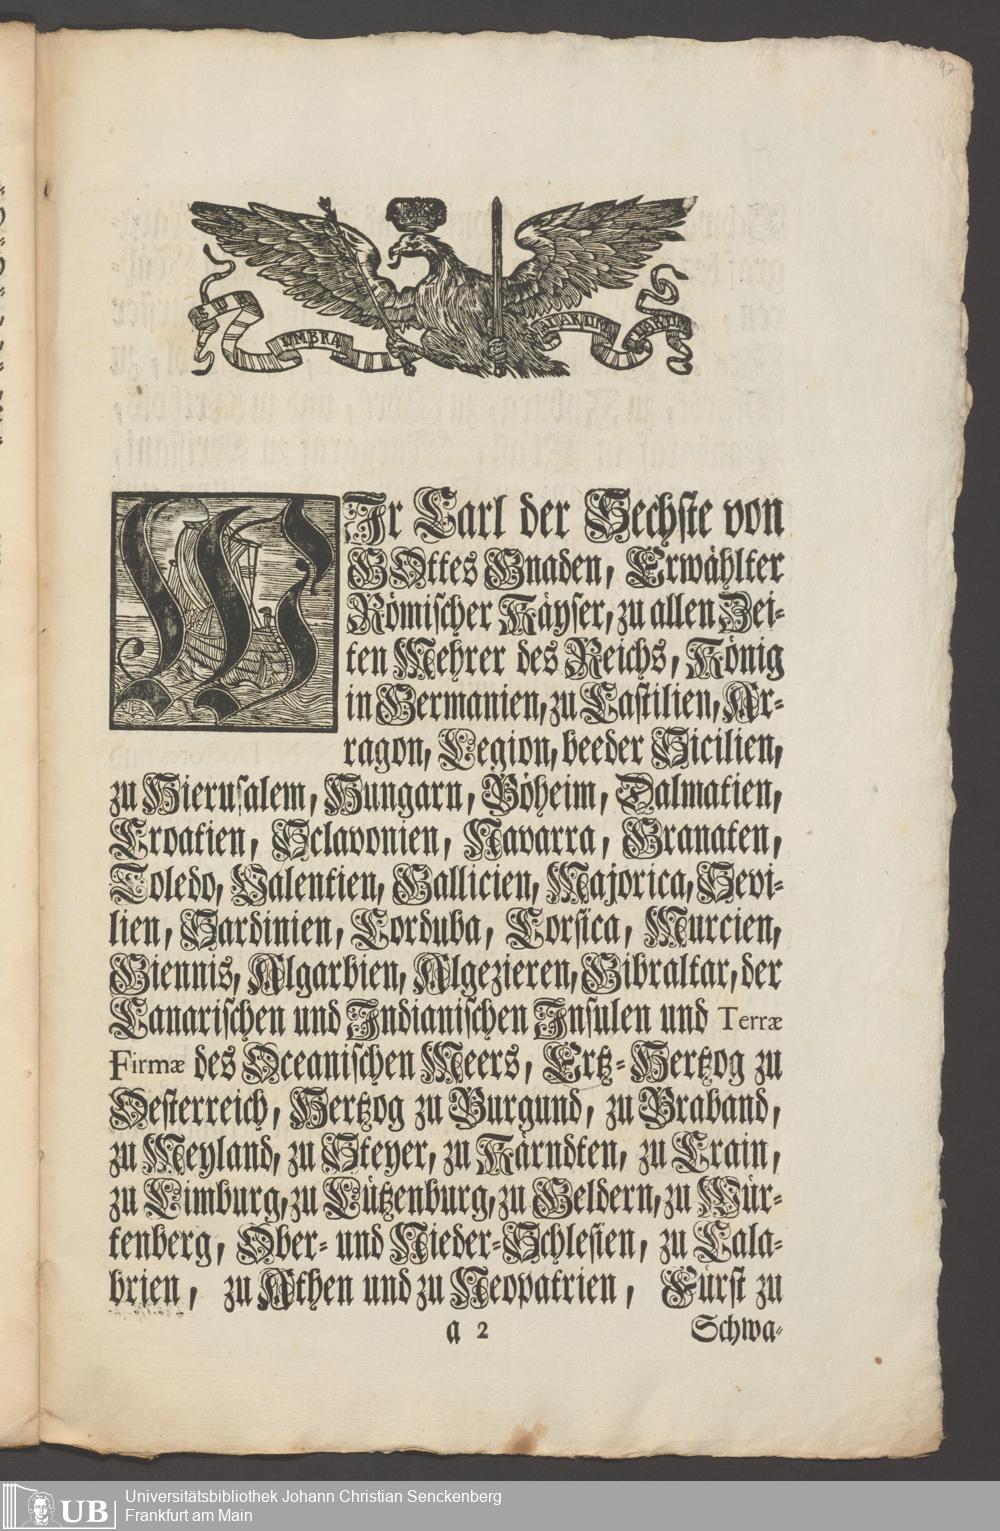 92
SUB UMBRA ALARUM TUARUM
WIr Carl der Sechste von
GOttes Gnaden, Erwählter
Römischer Käyser, zu allen Zei-
ten Mehrer des Reichs, König
in Germanien, zu Castilien, Ar-
ragon, Legion, beeder Sicilien,
zu Hierusalem, Hungarn, Böheim, Dalmatien,
Croatien, Sclavonien, Navarra, Granaten,
Toledo, Valentien, Gallicien, Majorica, Sevi-
lien, Sardinien, Corduba, Corsica, Murcien,
Giennis, Algarbien, Algezieren, Gibraltar, der
Canarischen und Indianischen Insulen und Terræ
Firmæ des Oceanischen Meers, Ertz-Hertzog zu
Oesterreich, Hertzog zu Burgund, zu Braband,
zu Meyland, zu Steyer, zu Kärndten, zu Crain,
zu Limburg, zu Lützenburg, zu Geldern, zu Wür-
tenberg, Ober- und Nieder-Schlesien, zu Cala-
brien, zu Athen und zu Neopatrien, Fürst zu
a 2 Schwa-
UB
Universitätsbibliothek Johann Christian Senckenberg
Frankfurt am Main